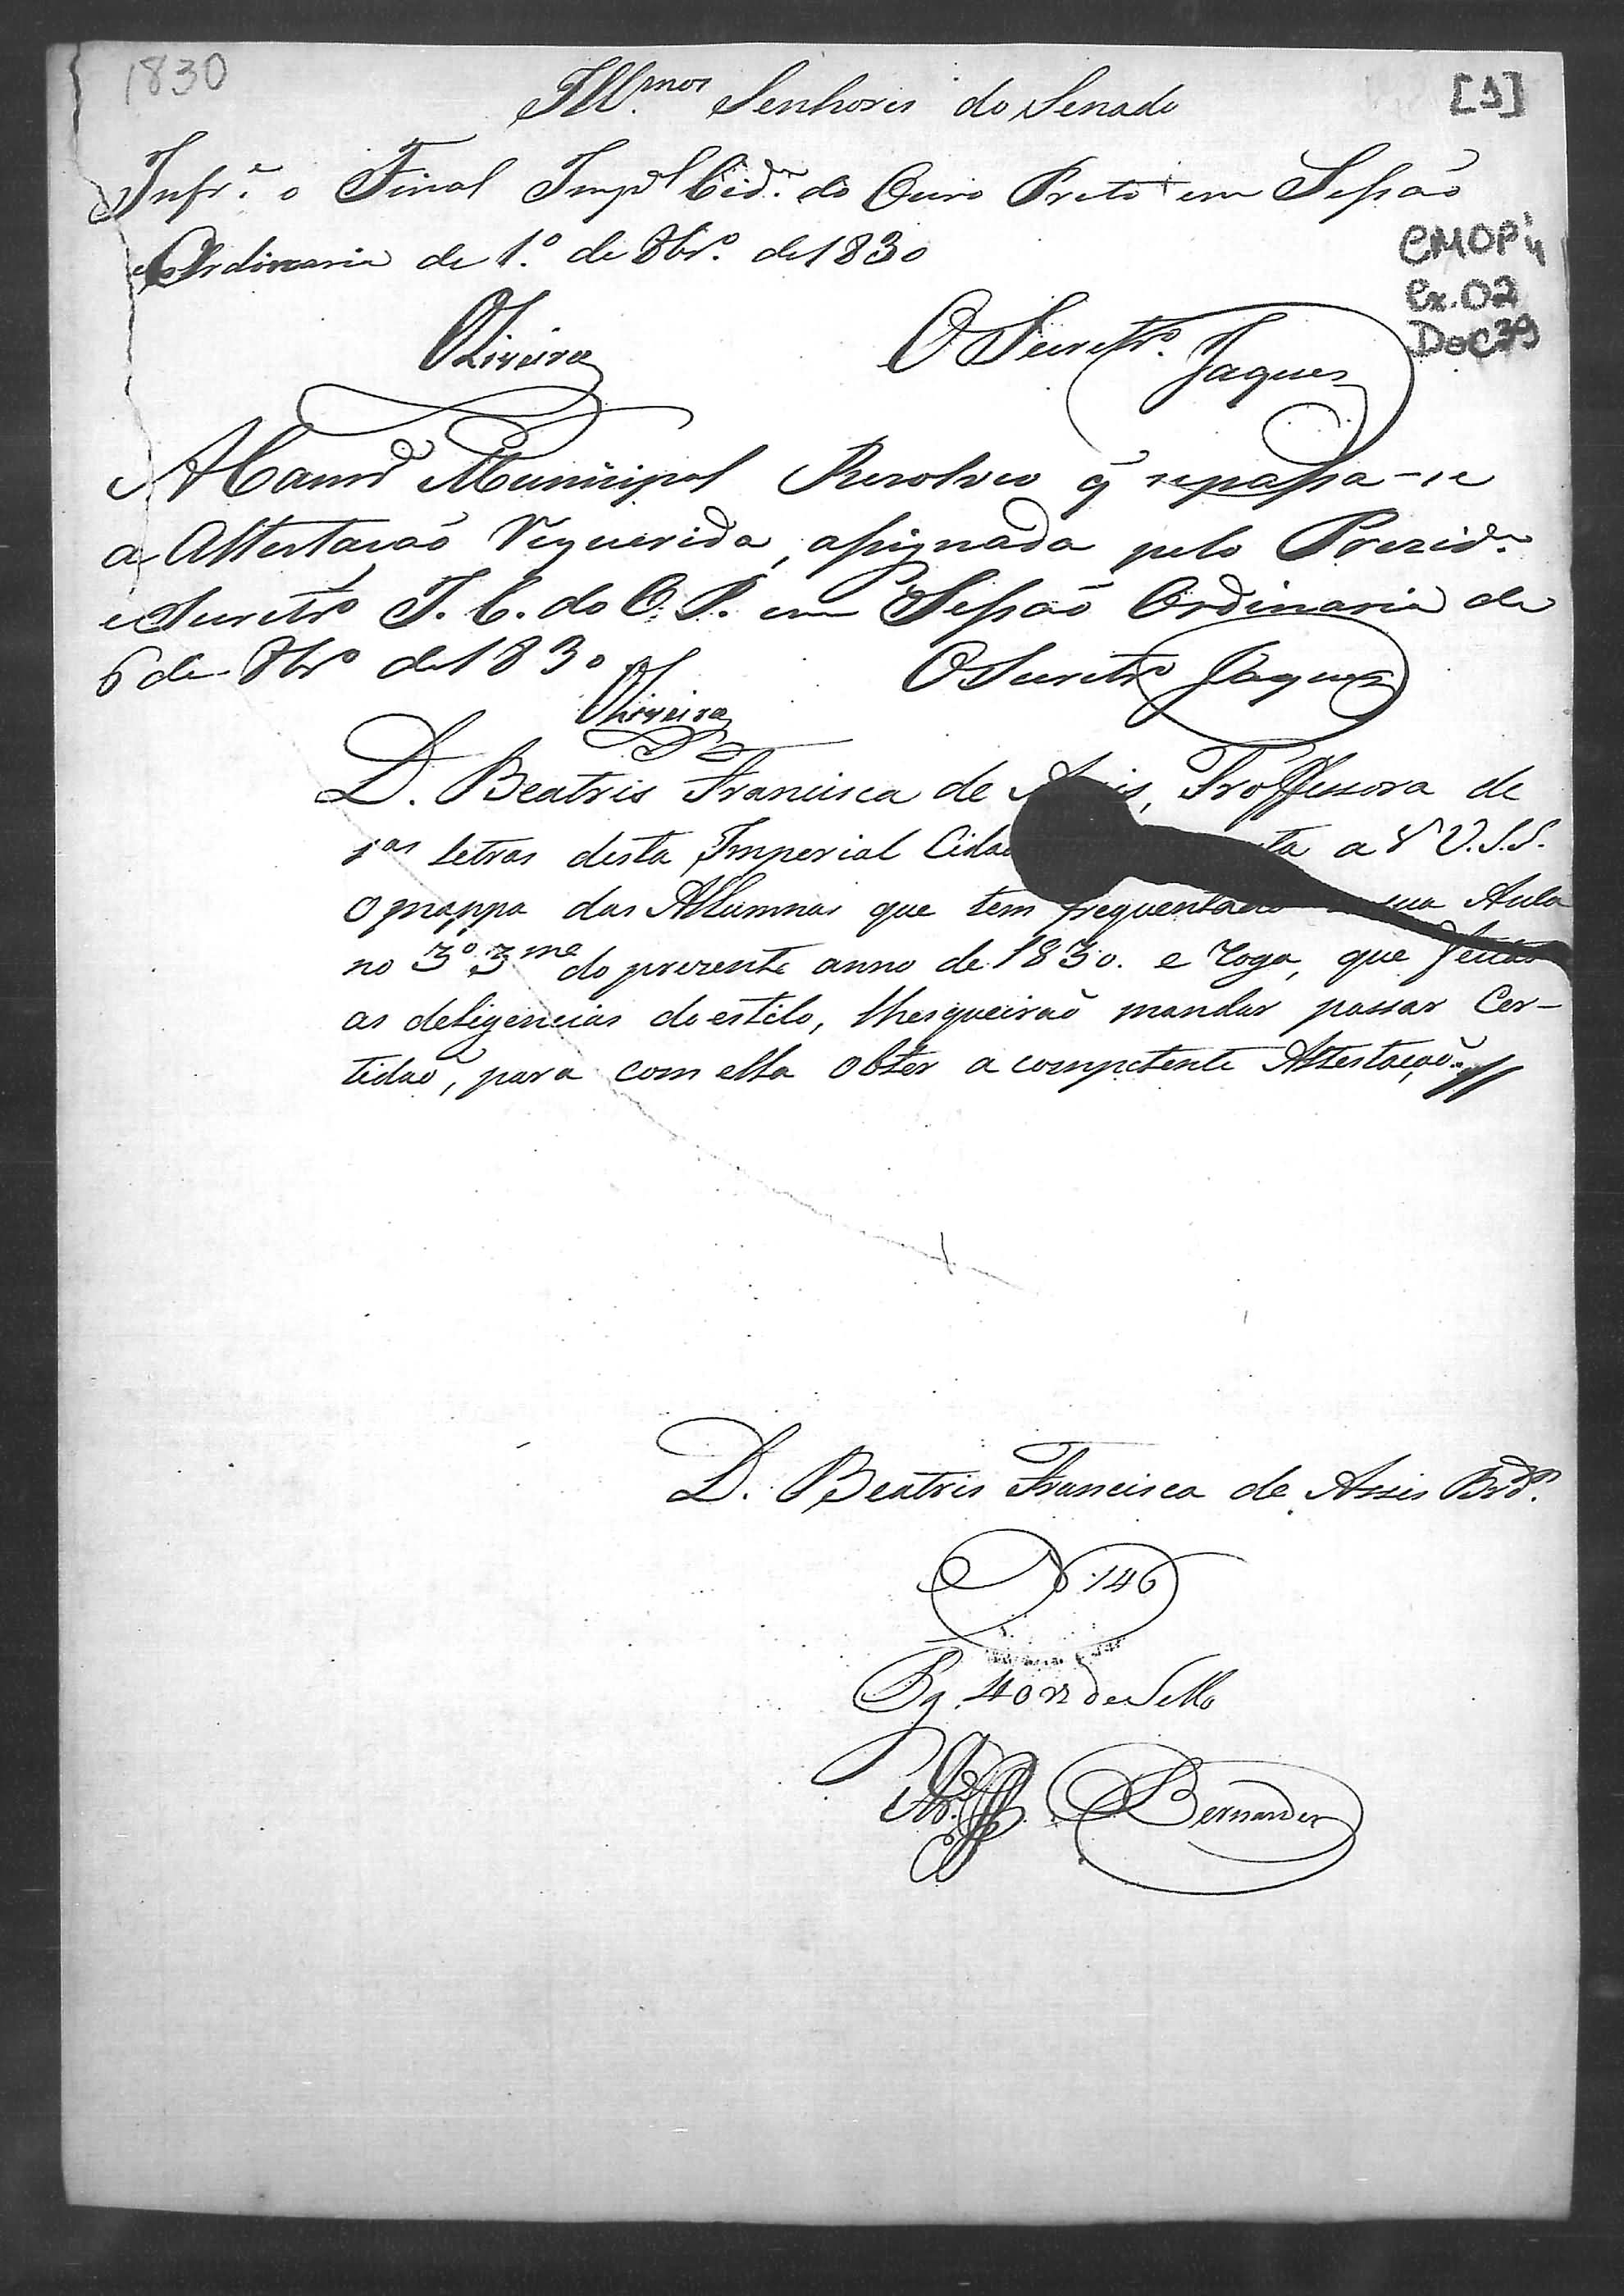 1830
Ill.mos Senhores do Senado
[1]
Infr.e o Fiscal Imp.l Cid.e do Ouro Preto em Sessão
Ordinaria de 1.º de 8br.º de 1830
CMOP
Cx. 02
Doc 39
Oliveira
O Secretr.º Jaques
A Camr.ª Municipal Resolveo q̃ se passa-se
a Attestação Requerida, assignada pelo Prezid.e
e Secretr.º I. C. do O. P. em Sessão Ordinaria de
6 de 8br.º de 1830
O Secretr.º Jaques
Oliveira
D. Beatris Francisca de Assis, Proffessora de
1.as letras desta Imperial Cida ta a V.S.S.
o mappa das Allumnas que tem frequentado sua Aula
no 3º 3me do prezente anno de 1830. e roga, que feitas
as deligencias do estilo, lhes queirão mandar passar Cer-
tidão, para com ella obter a competente Attestação.
D. Beatris Francisca de Assis Brd.ª
N 146
Pg. 40 rs de Sello
Bernardes